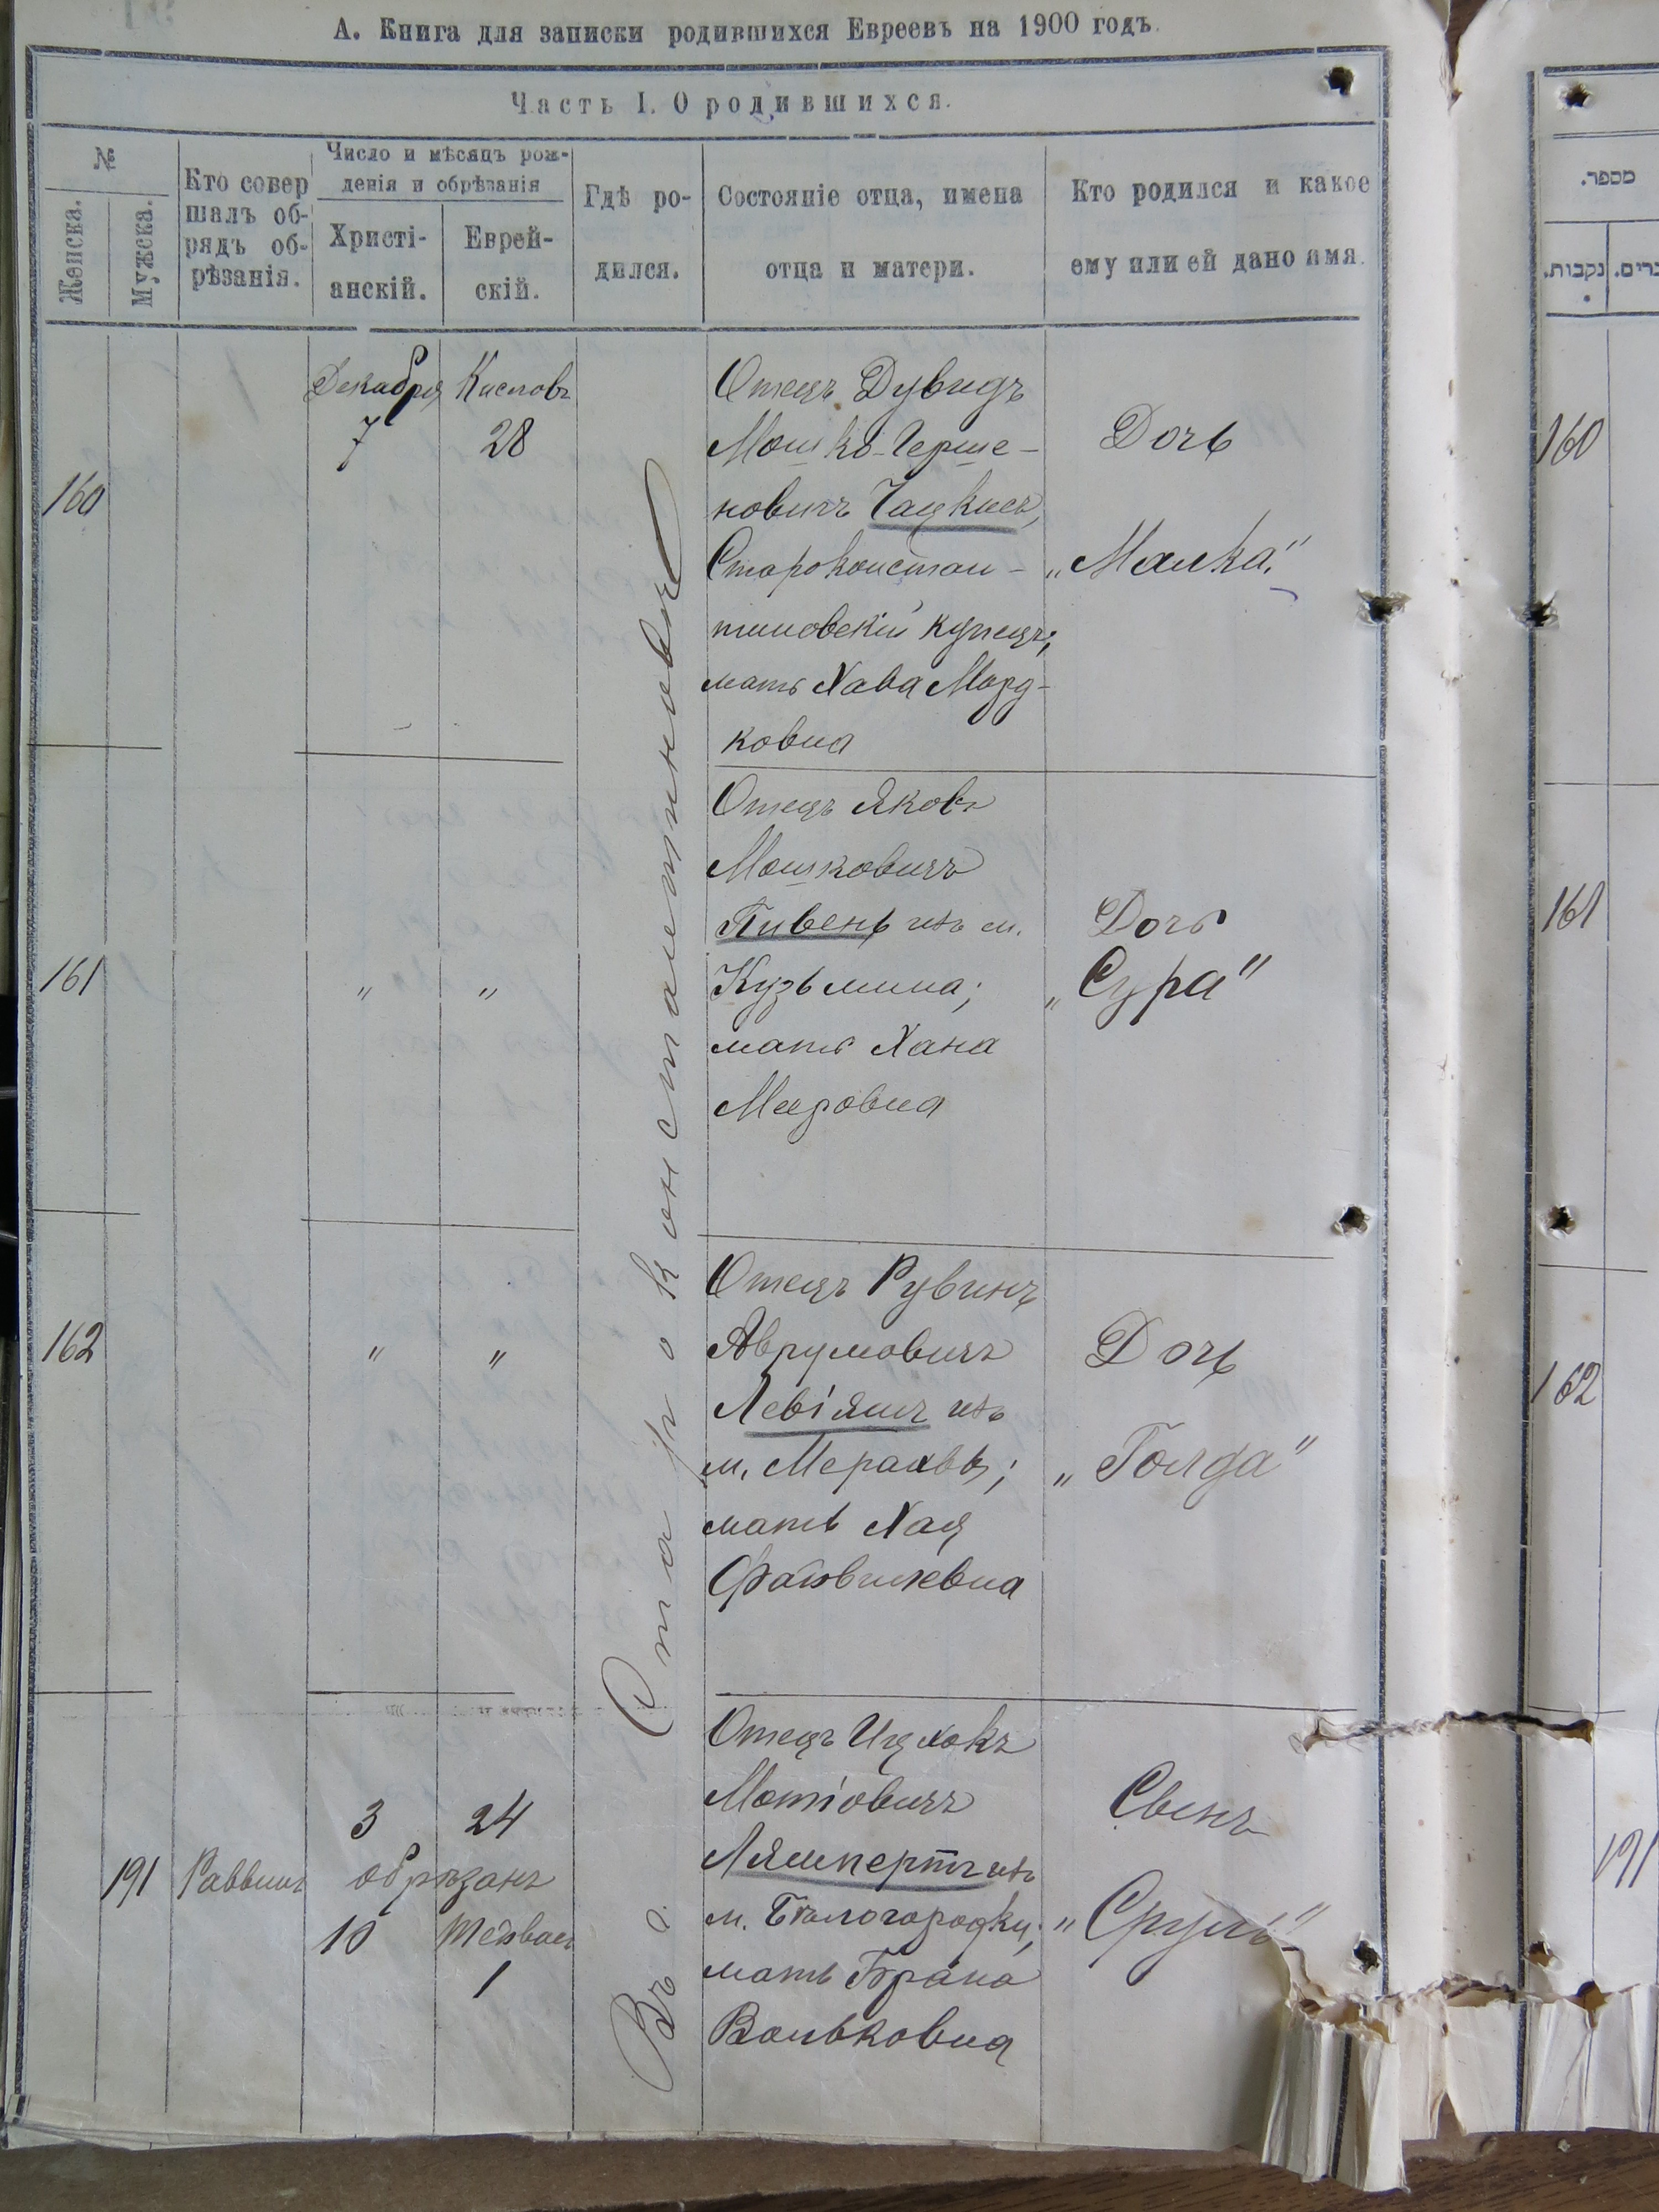 А. Книга для записки родившихся Евреевъ на 1900 годъ.
Часть I. О родившихся.
№
Женска.
Мужеска.
Кто совер
шалъ об-
рядъ об-
рѣзанія.
Число и мѣсяцъ рож-
денія и обрѣзанія
Христі-
анскій.
Еврей-
скій.
Гдѣ ро-
дился.
Состояніе отца, имена
отца и матери.
Кто родился и какое
ему или ей дано имя.
מספר.
נקבות.
160
Декабря
7
Кислов
28
Въ г. Староконстантиновѣ
Отецъ Дувидъ
Мошко-Герше-
новичъ Чацкисъ,
Староконстан-
тиновскій купецъ;
мать Хава Морд-
ковна
Дочь
„Малка“
160
161
" "
Отецъ Яковъ
Мошковичъ
Пивень изъ м.
Кузьмина;
мать Хана
Меировна
Дочь
„Сура“
161
162
" "
Отецъ Рувинъ
Аврумовичъ
Левіяшъ изъ
м.
мать Хая
Файвишевна
Дочь
„Голда“
162
191
Раввинъ
3 24
обрѣзанъ
10
1
Отецъ Ицхокъ
Мотіовичъ
Лямпертъ изъ
м. Бѣлогородки;
мать Брана
Вольковна
Сынъ
„Сруль“
191